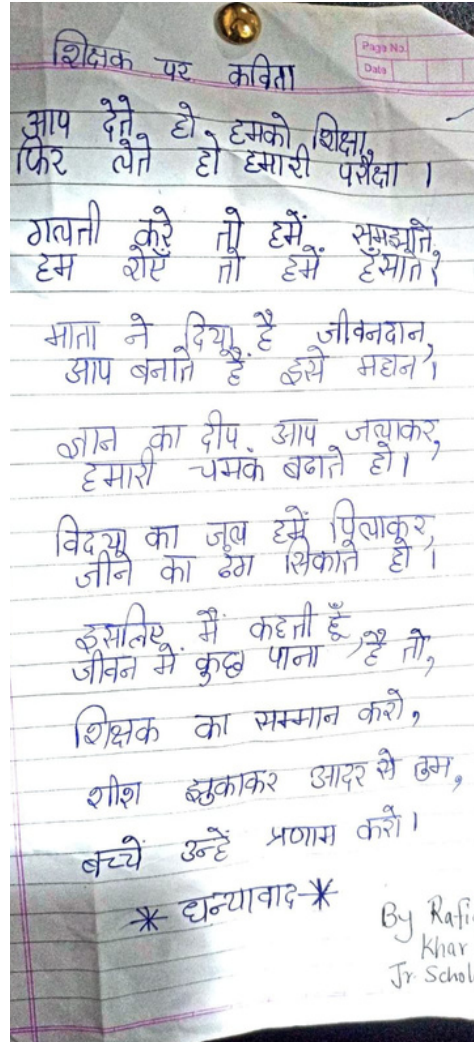 Page No.
Date
शिक्षक पर कविता
आप देते हो हमको शिक्षा,
फिर लेते हो हमारी परीक्षा ।
गलती करे तो हमें समझाते
हम रोएँ तो हमें हँसाते।
माता ने दिया है जीवनदान,
आप बनाते हैं इसे महान ।
ज्ञान का दीप आप जलाकर,
हमारी चमक बढाते हो।
विद्या का जल हमें पिलाकर,
जीने का ढंग सिकाते हो ।
इसलिए मैं कहती हूँ
जीवन में कुछ पाना है तो,
शिक्षक का सम्मान करो,
शीश झुकाकर आदर से तुम,
बच्चें उन्हें प्रणाम करो।
* धन्यावाद *
By
Khar
Jr. Schol